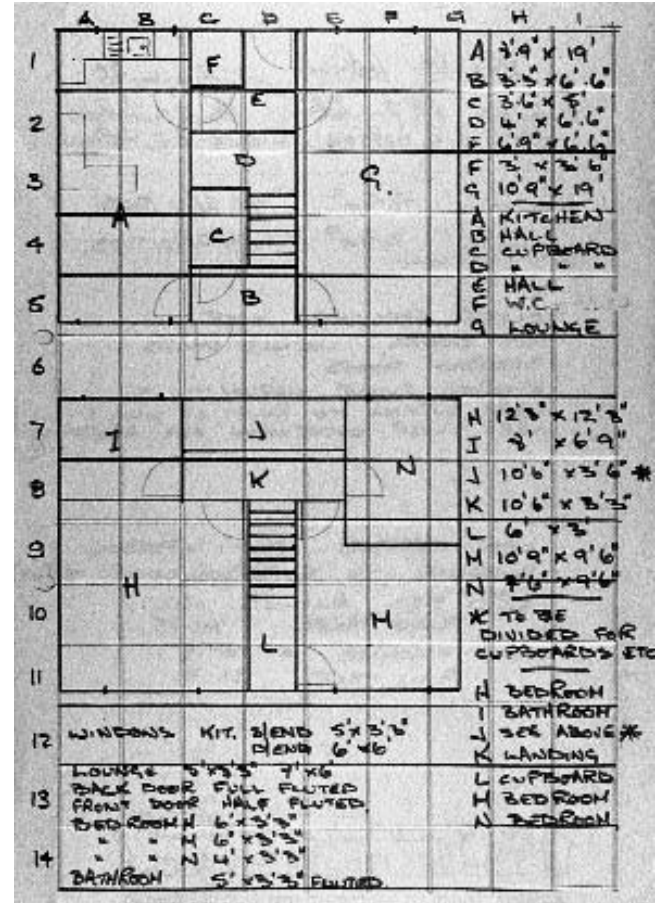 A B C D E F G H I
1
2
3
4
5
6
7
8
9
10
11
12
13
14
F
E
D
G.
A
C
B
I
J
K
N
H
M
L
A x 19'
B 3'3" x 6'.6"
C 3'6" x
D 4' x 6'.6"
6'9" x 6'.6"
F 3' x 3'6"
G 10'9" x 19'
A KITCHEN
B HALL
C CUPBOARD
D " "
E HALL
F W.C.
G LOUNGE
H 12'3" x 12'3"
I 8' x 6'9"
J 10'6" x 3'6" *
K 10'6" x 3'3"
L 6' x 3'
M 10'9" x 9'6"
N 7'6" x 9'6"
* TO BE
DIVIDED FOR
CUPBOARDS ETC
H BEDROOM
I BATHROOM
J SEE ABOVE *
K LANDING
L CUPBOARD
M BEDROOM
N BEDROOM
WINDOWS KIT. B/END 5' x 3'3"
D/END 6' x 6'
LOUNGE 5' x 3'3" 7' x 6'
BACK DOOR FULL FLUTED
FRONT DOOR HALF FLUTED
BEDROOM H 6' x 3'3"
" " M 6' x 3'3"
" " N 4' x 3'3"
BATHROOM 5' x 3'3" FLUTED